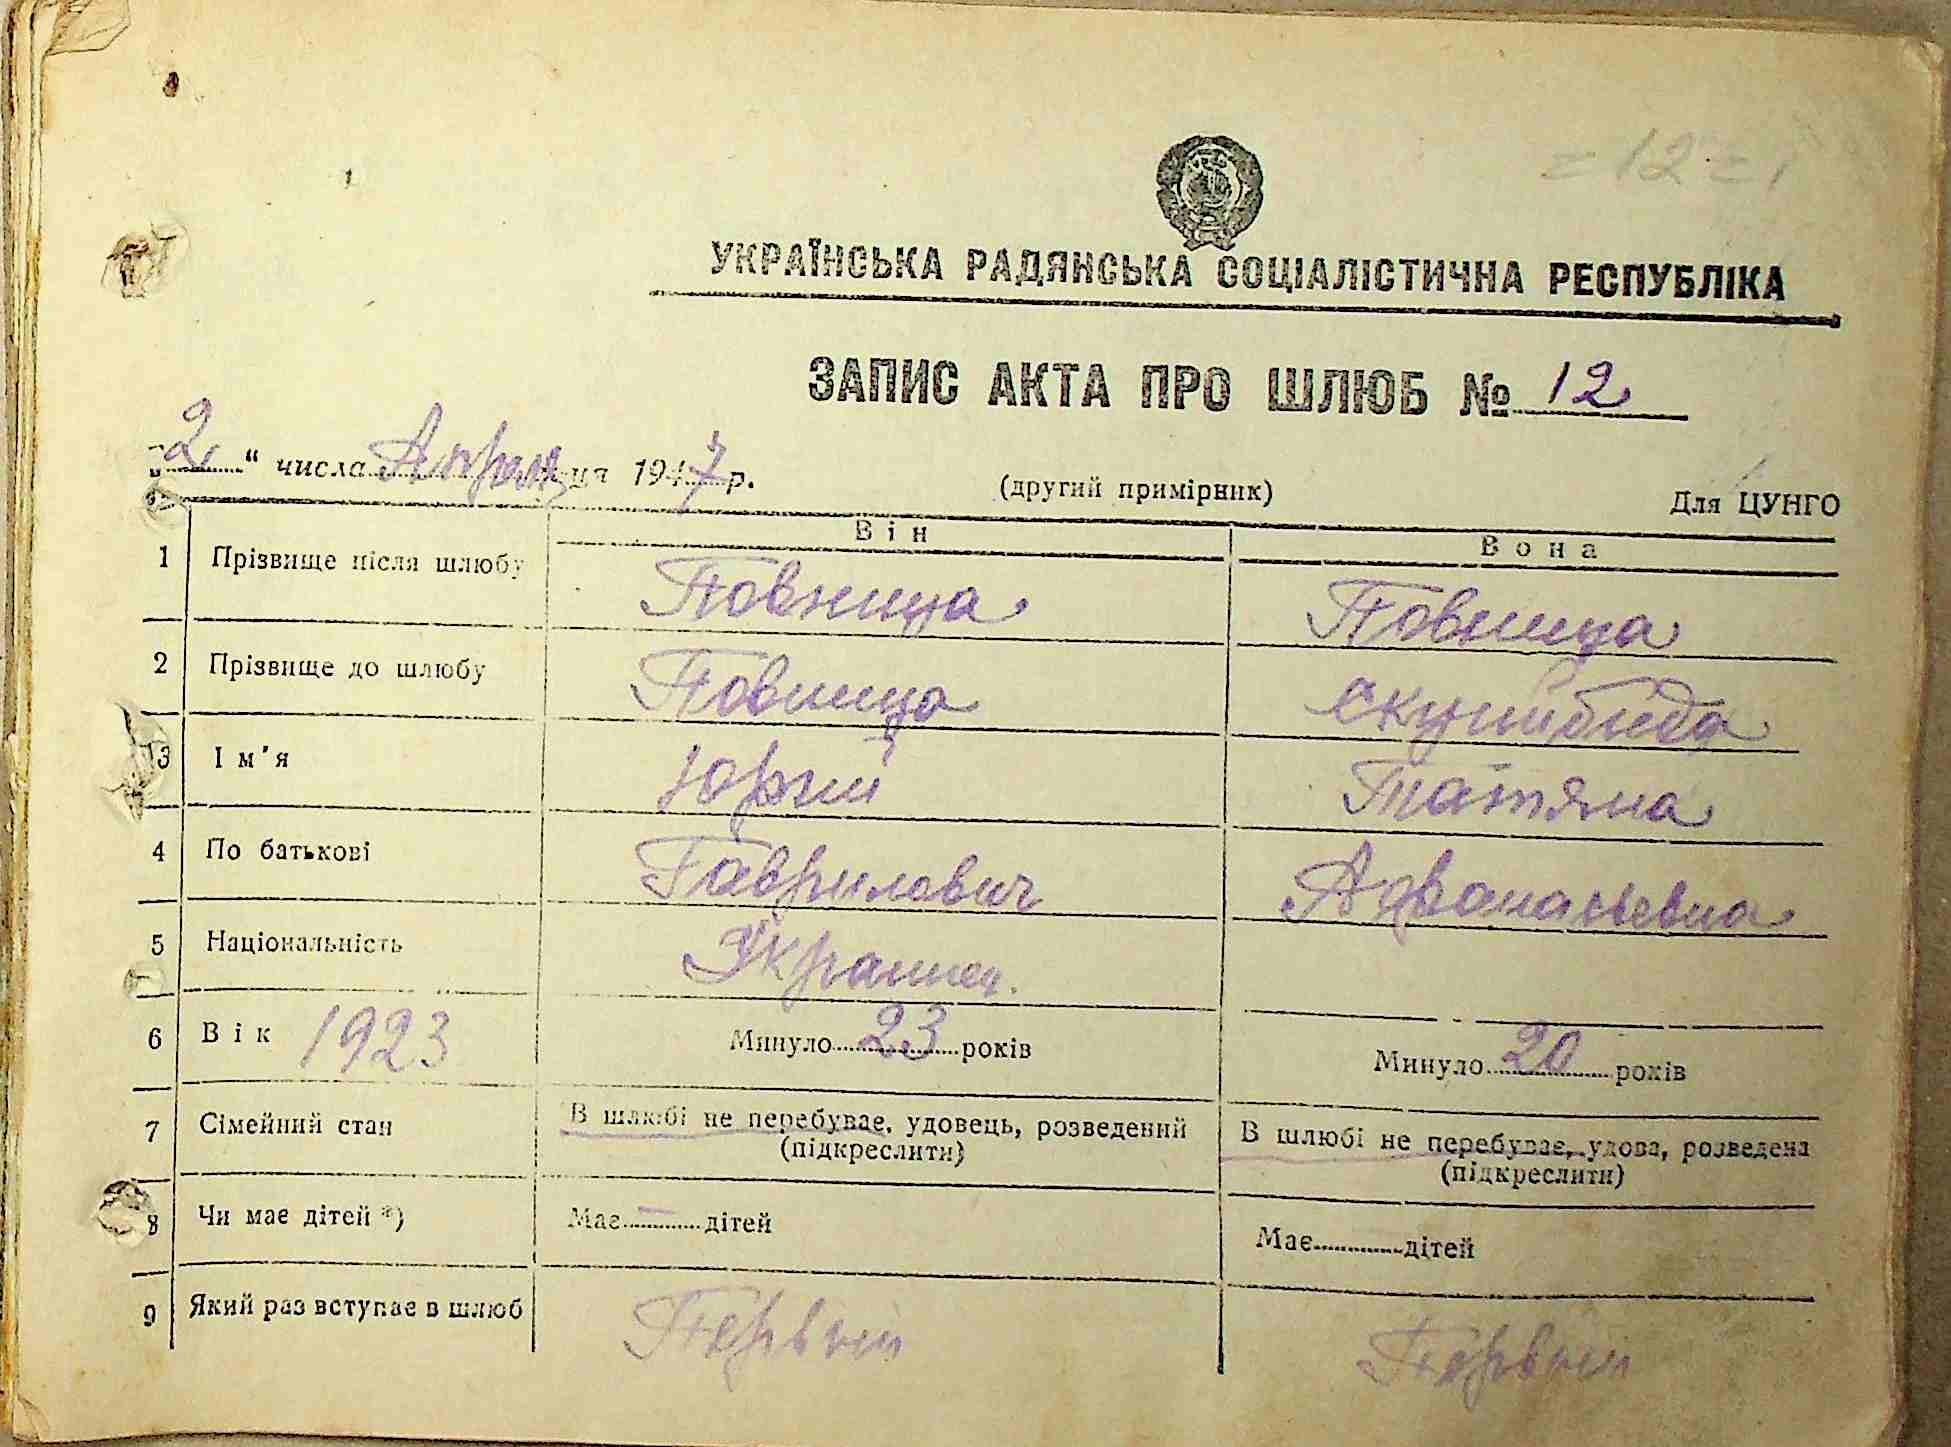 = 12 =
УКРАЇНСЬКА РАДЯНСЬКА СОЦІАЛІСТИЧНА РЕСПУБЛІКА
ЗАПИС АКТА ПРО ШЛЮБ № 12
„2“ числа Апреля ця 1947 р. (другий примірник) Для ЦУНГО
Він Вона
1 Прізвище після шлюбу Повница Повница
2 Прізвище до шлюбу Повница
3 Ім'я Юрий Татяна
4 По батькові Гаврилович Афанасьевна
5 Національність Украинец.
6 Вік 1923 Минуло 23 років Минуло 20 років
7 Сімейний стан В шлюбі не перебуває, удовець, розведений В шлюбі не перебуває, удова, розведена
(підкреслити) (підкреслити)
8 Чи має дітей *) Має — дітей Має дітей
9 Який раз вступає в шлюб Первый Первый